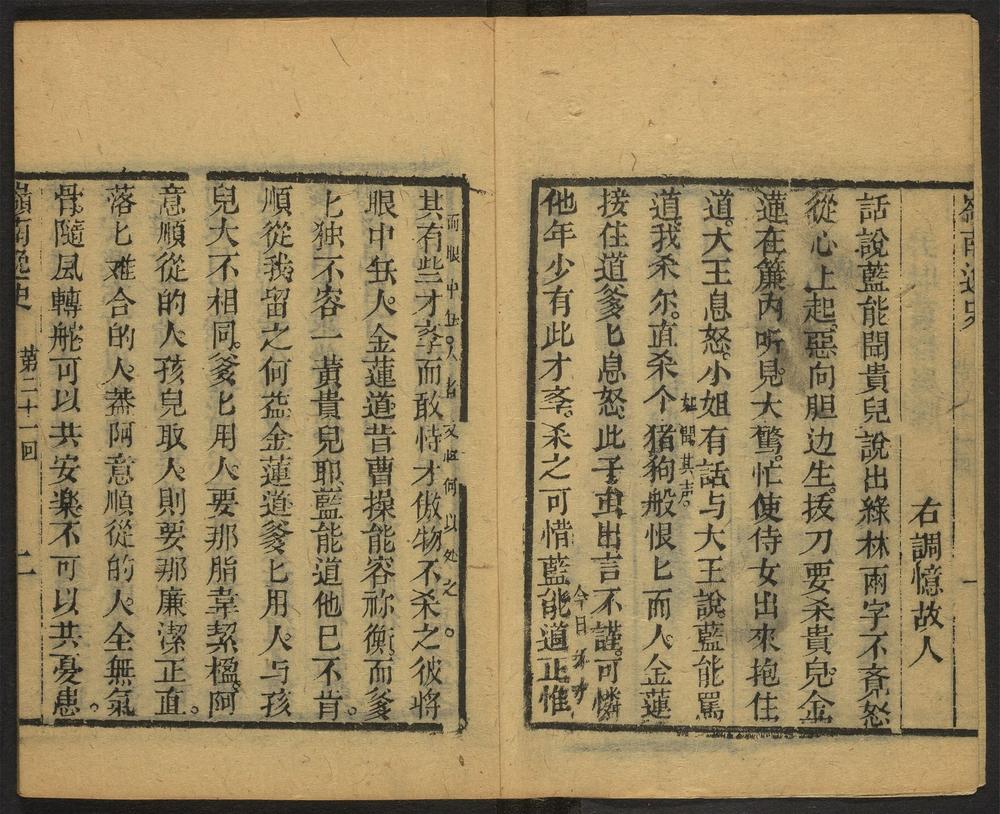 右調憶故人
話說藍能聞貴兒說出綠林兩字不斉怒
從心上起。惡向胆边生。拔刀要杀貴兒。金
蓮在簾内听見大驚。忙使侍女出來抱住
道。大王息怒。小姐有話与大王說。藍能罵
道。我杀尔。直杀个猪狗般恨匕而入。金蓮
接住道爹匕息怒。此子虽出言不謹。可憐
他年少有此才孝。杀之可惜藍能道正惟
其有些才孝而敢恃才傲物不杀之。彼將
眼中無人。金蓮道昔曹操能容祢衡。而爹
匕独不容一黃貴兒耶。藍能道他已不肯。
順從我留之何益金蓮道爹匕用人。与孩
兒大不相同。爹匕用人。要那脂韋絜楹。阿
意順從的人。孩兒取人。則要那廉潔正直。
落匕难合的人。蓋阿意順從的人。全無氣
骨。隨風轉舵。可以共安樂不可以共憂患。
嶺南逸史
第二十一回
二
如聞其声。
而眼中無人者又將何以处之。